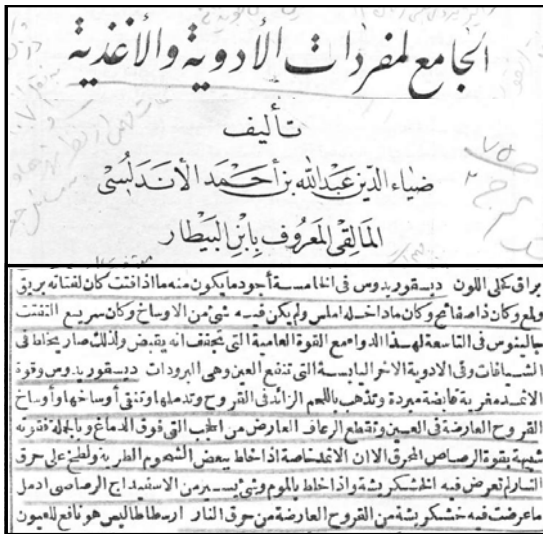 الجامع لمفردات الأدوية والأغذية
تأليف
ضياء الدين عبد الله بن أحمد الأندلسي
المالقي المعروف بابن البيطار
براق كحلي اللون ديسقوريدوس في الخامسة أجود ما يكون منه ما اذا فتت كان لفتاته بريق
ولمع وكان ذا صفائح وكان ما داخله املس ولم يكن فيه شئ من الاوساخ وكان سريع التفتت
جالينوس في التاسعة لهذا الدواء مع القوة العامية التي تجفف انه يقبض ولذلك صار يخلط في
الشيافات وفي الادوية الاخر اليابسة التي تنفع العين وهي البرودات ديسقوريدوس وقوة
الاثمد مغرية قابضة مبردة وتذهب باللحم الزائد في القروح وتدملها وتنقي أوساخها وأوساخ
القروح العارضة في العين وتقطع الرعاف العارض من الحجب التي فوق الدماغ وبالجملة فقوته
شبيهة بقوة الرصاص المحرق الا ان الاثمد خاصة اذا خلط ببعض الشحوم الطرية ولطخ على حرق
النار لم تعرض فيه الخشكريشة واذا خلط بالموم وشئ يسير من الاسفيداج الرصاصي ادمل
ما عرضت فيه خشكريشة من القروح العارضة من حرق النار ارسطاطاليس هو نافع للعيون